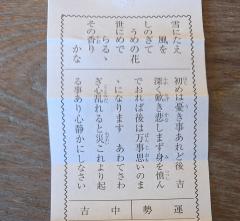 雪にたえ
風を
しのぎて
うめの花
世にめで
らるゝ
その香り
かな
初めは憂き事あれど後吉
深く歎き悲しまず身を慎ん
でおれば後は万事思いのま
ゝになります　あわてさわ
ぎ心乱れると災これより起
る事あり心静かにしなさい
運勢
中吉